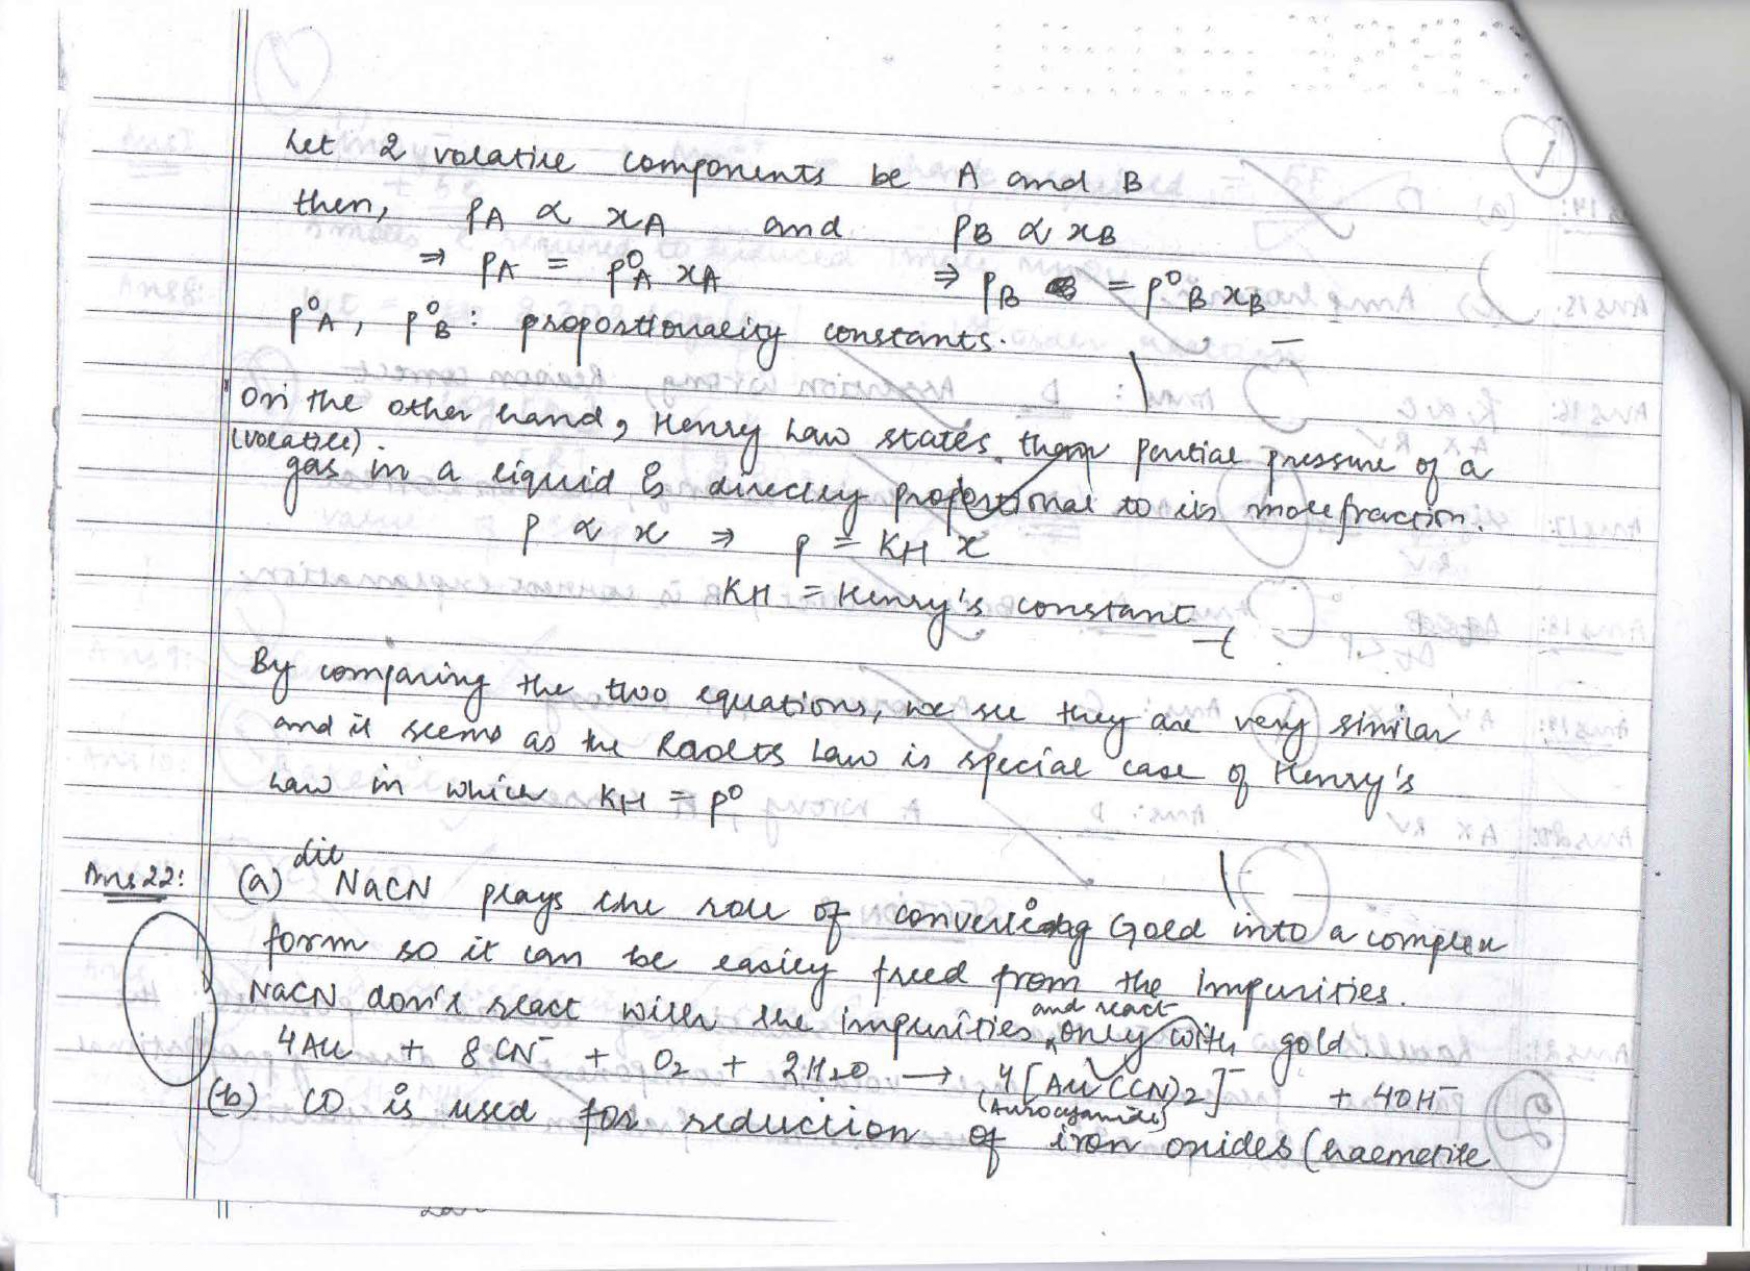 Let 2 volatile components be A and B
then, pA ∝ xA and pB ∝ xB
⇒ pA = p⁰A xA ⇒ pB = p⁰B xB
p⁰A, p⁰B : proportionality constants.
On the other hand, Henry Law states that partial pressure of a
(volatile)
gas in a liquid is directly proportional to its mole fraction.
p ∝ x ⇒ p = KH x
KH = Henry's constant
By comparing the two equations, we see they are very similar
and it seems as the Raolts Law is special case of Henry's
Law in which KH = p⁰
Ans 22: (a) dil NaCN plays the role of converting Gold into a complex
form so it can be easily freed from the Impurities.
NaCN don't react with the impurities and react only with gold.
4Au + 8CN⁻ + O2 + 2H2O → 4[Au(CN)2]⁻ + 4OH⁻
(Aurocyanide)
(b) CO is used for reduction of iron oxides (haemetite